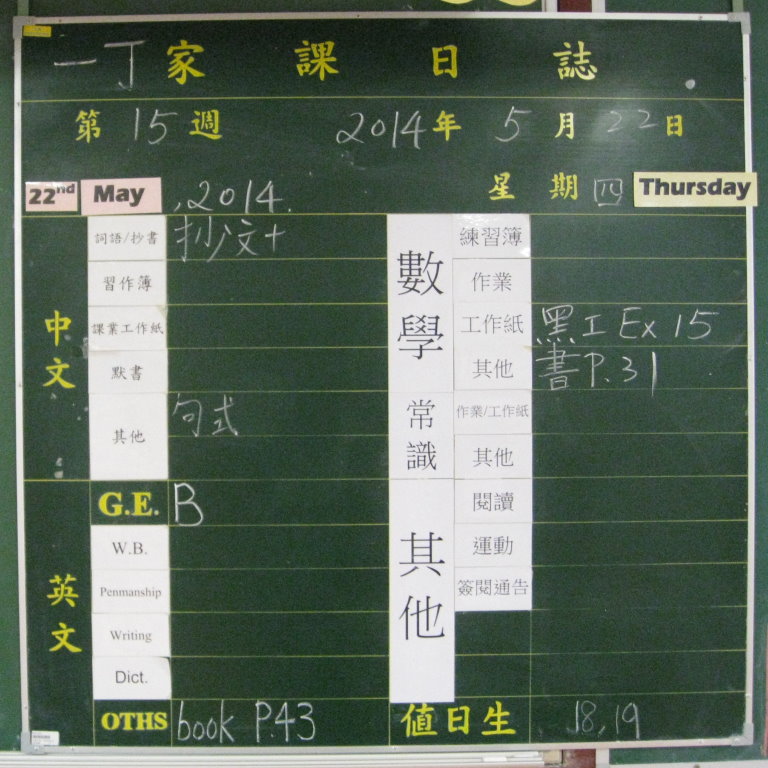 一丁家課日誌
第15週 2014年5月22日
22nd May , 2014. 星期四 Thursday
中文
詞語/抄書 抄文十
習作簿
課業工作紙
默書
其他 句式
英文
G.E. B
W.B.
Penmanship
Writing
Dict.
OTHS book P.43
數學
練習簿
作業
工作紙 黑工 Ex 15
其他 書P.31
常識
作業/工作紙
其他
其他
閱讀
運動
簽閱通告
值日生 18,19